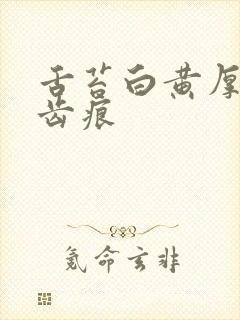 舌苔白黄厚
齿痕
氪命玄非